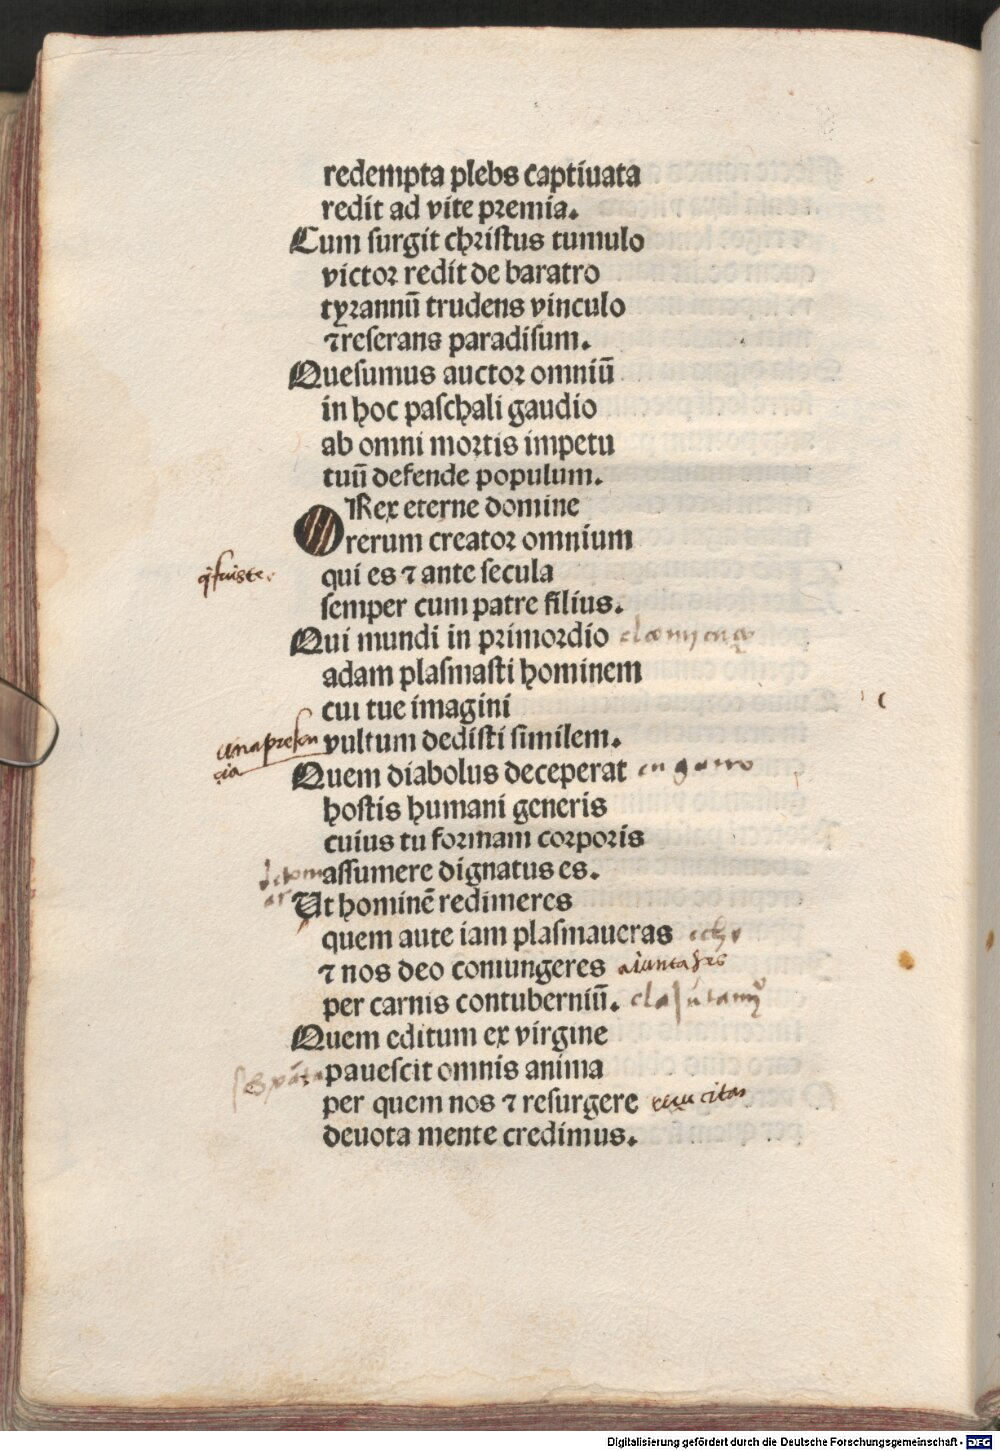 redempta plebs captiuata
redit ad vite premia.
Cum surgit christus tumulo
victor redit de baratro
tyrannū trudens vinculo
⁊reserans paradisum.
Quesumus auctor omniū
in hoc paschali gaudio
ab omni mortis impetu
tuū defende populum.
O Rex eterne domine
rerum creator omnium
qui es ⁊ ante secula
semper cum patre filius.
Qui mundi in primordio
adam plasmasti hominem
cui tue imagini
vultum dedisti similem.
Quem diabolus deceperat
hostis humani generis
cuius tu formam corporis
assumere dignatus es.
Ut hominē redimeres
quem ante iam plasmaueras
⁊ nos deo coniungeres
per carnis contuberniū.
Quem editum ex virgine
pauescit omnis anima
per quem nos ⁊ resurgere
deuota mente credimus.
Digitalisierung gefördert durch die Deutsche Forschungsgemeinschaft - DFG